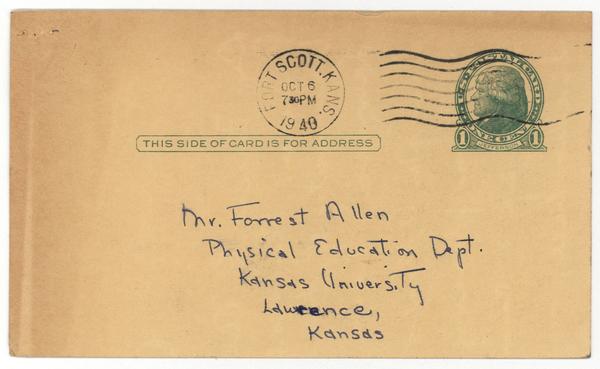 FORT SCOTT, KANS.
OCT 6
730PM
1940
1 JEFFERSON 1
THIS SIDE OF CARD IS FOR ADDRESS
Mr. Forrest Allen
Physical Education Dept.
Kansas University
Lawrence,
Kansas